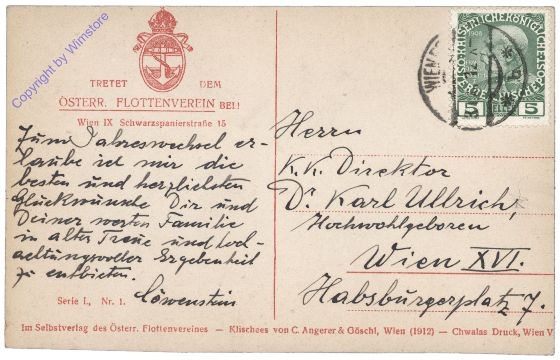 Copyright by Wimstore
TRETET DEM
ÖSTERR. FLOTTENVEREIN BEI!
Wien IX Schwarzspanierstraße 15
Zum Jahreswechsel er-
laube ich mir die
besten und herzlichsten
Glückwünsche Dir und
Deiner werten Familie
in alter Treue und hoch-
achtungsvoller Ergebenheit
zu entbieten.
Löwenstein
Serie I., Nr. 1.
WIEN
5 5
Herrn
K.K. Direktor
Dr. Karl Ullrich,
Hochwohlgeboren
Wien XVI.
Habsburgerplatz 7.
Im Selbstverlag des Österr. Flottenvereines – Klischees von C. Angerer & Göschl, Wien (1912) – Chwalas Druck, Wien V